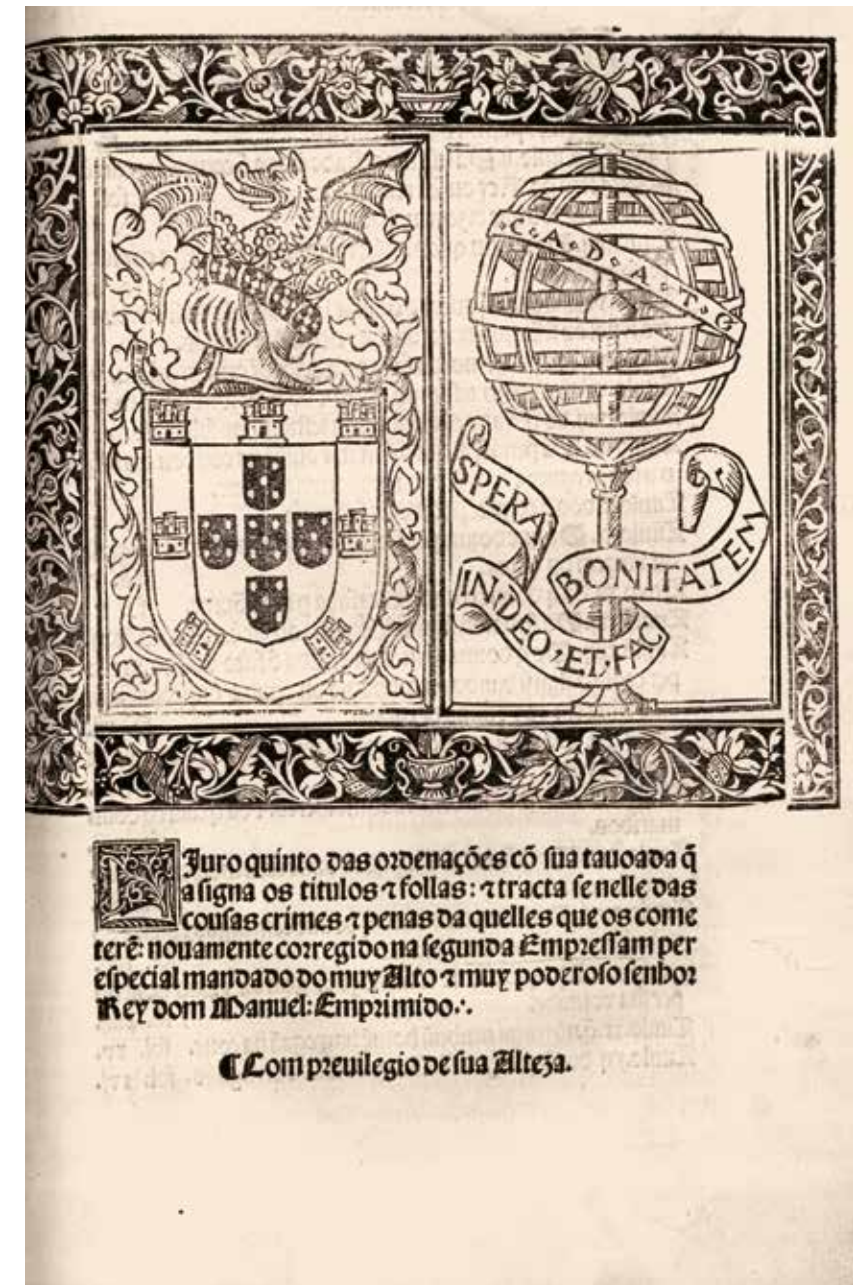 C·A·D·A·T·G
SPERA
IN·DEO·ET·FAC
BONITATEM
Liuro quinto das ordenações cõ sua tauoada q̃
asigna os titulos ⁊ follas: ⁊ tracta se nelle das
cousas crimes ⁊ penas da quelles que os come
terẽ: nouamente corregido na segunda Empressam per
especial mandado do muy Alto ⁊ muy poderoso senhor
Rey dom Manuel: Emprimido.·.
¶ Com preuilegio de sua Alteza.